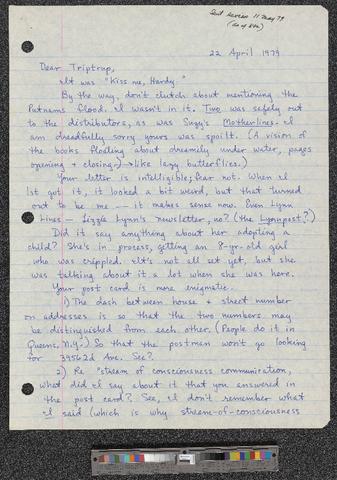 Sent review 11 May 79
22 April 1979
Dear Triptrup,
It was "Kiss me, Hardy."
By the way, don't clutch about mentioning the
Putnams flood. I wasn't in it. Two was safely out
to the distributors, as was Suzy's Motherlines. I
am dreadfully sorry yours was spoilt. (A vision of
the books floating about dreamily under water, pages
opening & closing, like lazy butterflies.)
Your letter is intelligible; fear not. When I
1st got it, it looked a bit weird, but that turned
out to be me — it makes sense now. Even Lynn
Lines — Lizzie Lynn's newsletter, no? (the Lynnpost?)
Did it say anything about her adopting a
child? She's in process, getting an 8-yr-old girl
who was crippled. It's not all set yet, but she
was talking about it a lot when she was here.
Your post card is more enigmatic.
1) The dash between house & street number
on addresses is so that the two numbers may
be distinguished from each other. (People do it in
Queens, N.Y.) So that the postman won't go looking
for 39562d Ave. See?
2) Re "stream of consciousness communication,
what did I say about it that you answered in
the post card? See, I don't remember what
I said (which is why stream-of-consciousness